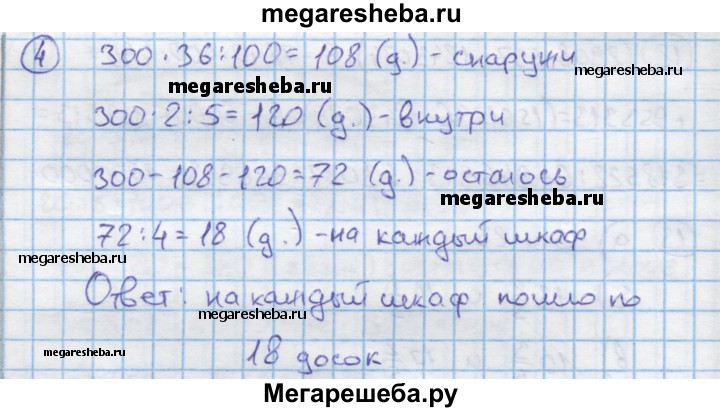 megaresheba.ru
④ 300 · 36 : 100 = 108 (д.) - снаружи
megaresheba.ru
megaresheba.ru
300 · 2 : 5 = 120 (д.) - внутри
300 - 108 - 120 = 72 (д.) - осталось
megaresheba.ru
72 : 4 = 18 (д.) - на каждый шкаф
megaresheba.ru
Ответ: на каждый шкаф пошло по
megaresheba.ru
18 досок
megaresheba.ru
Мегарешеба.ру